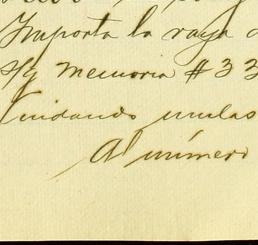 Importa la raya
Memoria # 33
cuidando mulas
Al número